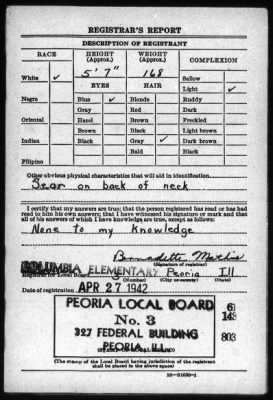 REGISTRAR'S REPORT
DESCRIPTION OF REGISTRANT
RACE HEIGHT (Approx.) WEIGHT (Approx.) COMPLEXION
5' 7" 168
White ✓ Sallow
EYES HAIR Light ✓
Negro Blue ✓ Blonde Ruddy
Gray Red Dark
Oriental Hazel Brown Freckled
Brown Black Light brown
Indian Black Gray ✓ Dark brown
Bald Black
Filipino
Other obvious physical characteristics that will aid in identification
Scar on back of neck
I certify that my answers are true; that the person registered has read or has had
read to him his own answers; that I have witnessed his signature or mark and that
all of his answers of which I have knowledge are true, except as follows:
None to my knowledge
Bernadette
(Signature of registrar)
Registrar for Local Board
COLUMBIA ELEMENTARY Peoria Ill
(City or county) (State)
Date of registration APR 27 1942
PEORIA LOCAL BOARD
No. 3
327 FEDERAL BUILDING
PEORIA, ILL.
803
(The stamp of the Local Board having jurisdiction of the registrant
shall be placed in the above space)